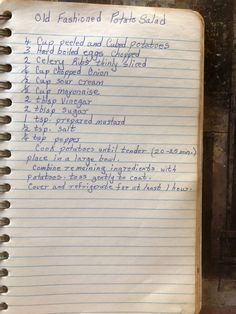 Old Fashioned Potato Salad
4 Cup peeled and Cubed potatoes
3 Hard boiled eggs Chopped
2 Celery Ribs thinly sliced
Cup Chopped Onion
Cup sour cream
Cup mayonaise
2 tblsp Vinegar
2 tblsp sugar
1 tsp. prepared mustard
½ tsp. salt
tsp pepper
Cook potatoes until tender (20-25 min)
place in a large bowl.
Combine remaining ingredients with
potatoes. toss gently to coat.
Cover and refrigerate for at least 1 hour.